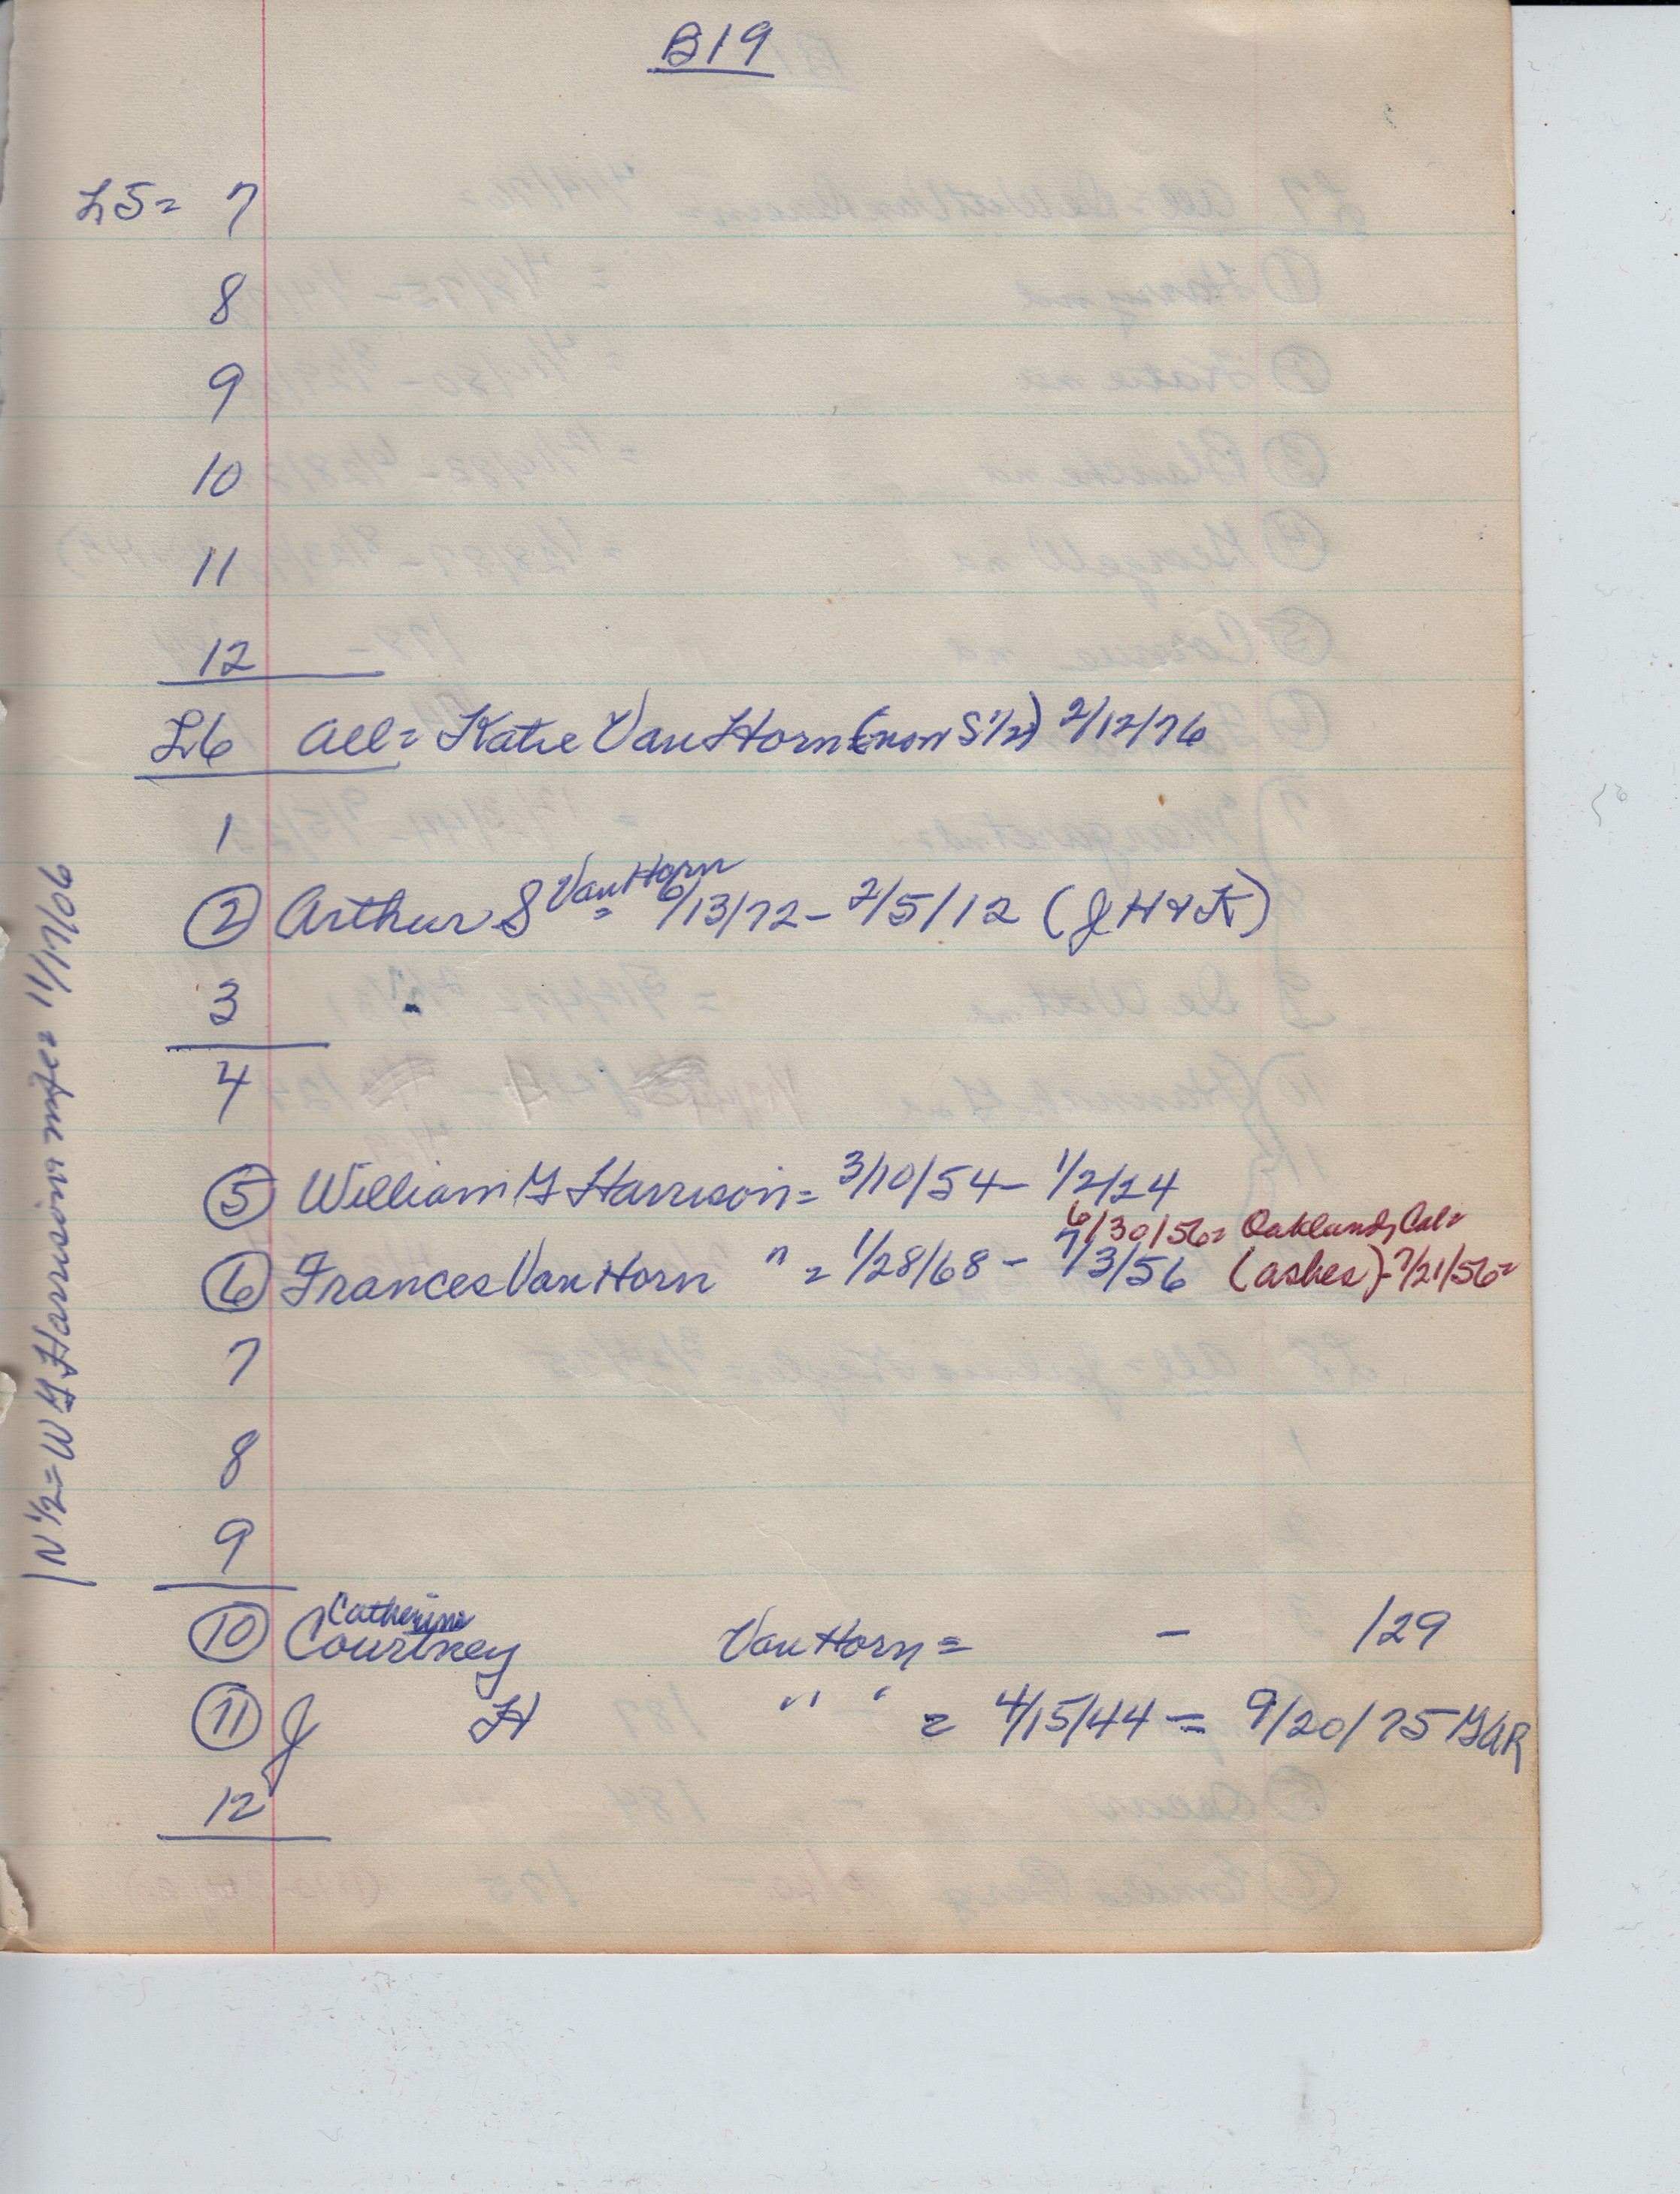 B19
L5= 7
8
9
10
11
12
L6 All= Katie Van Horn (now S 1/2) 2/12/76
1
② Arthur S Van Horn = 6/13/72 - 2/5/12 (J H & K)
3
4
⑤ William G Harrison = 3/10/54 - 1/2/24
6/30/56= Oakland, Cal=
⑥ Frances Van Horn " = 1/28/68 - 7/3/56 (ashes) - 7/21/56=
7
8
9
Catherine
⑩ Courtney Van Horn = - /29
⑪ J H " " = 4/15/44 = 9/20/75 GAR
12
N 1/2 = W G Harrison 11/17/06